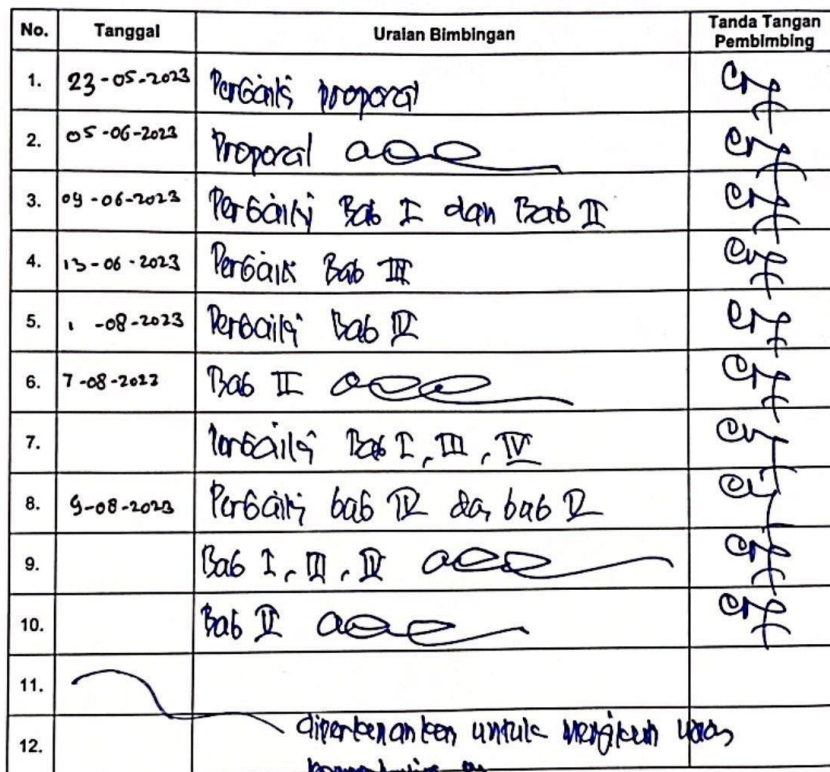 No. Tanggal Uraian Bimbingan Tanda Tangan Pembimbing
1. 23-05-2023 Perbaiki proposal
2. 05-06-2023 Proposal acc
3. 09-06-2023 Perbaiki Bab I dan Bab II
4. 13-06-2023 Perbaiki Bab III
5. 1 -08-2023 Perbaiki Bab IV
6. 7-08-2023 Bab II acc
7. Perbaiki Bab I, III, IV
8. 9-08-2023 Perbaiki bab IV da, bab V
9. Bab I, III, IV acc
10. Bab V acc
11.
12. diperkenankan untuk mengikuti